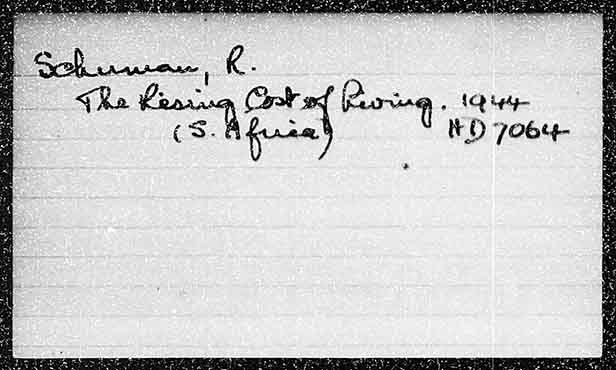 Schuman, R.
The Rising Cost of Living. 1944
(S. Africa) HD 7064